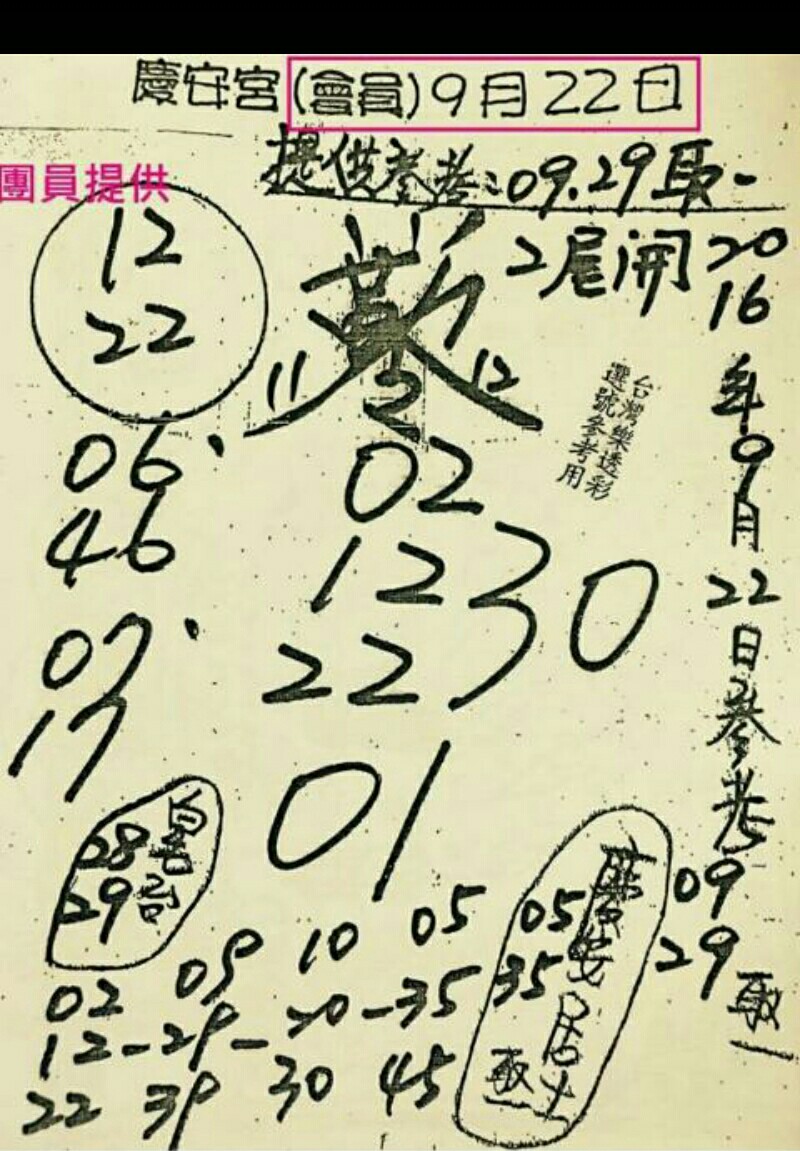 慶安宮(會員)9月22日
團員提供
提供參考:09.29取一
2尾開
2016年9月22日參考
09
29
取一
12
22
11
2
12
台灣樂透彩
選號參考用
06
46
07
17
02
12
22
30
01
28
29
05
35
慶安居士
取一
02 09 10 05
12-29-20-35
22 39 30 45